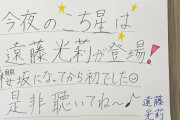 今夜のこち星は
遠藤光莉が登場!
櫻坂になってから初でした☺
是非聴いてね〜♪
遠藤
光莉